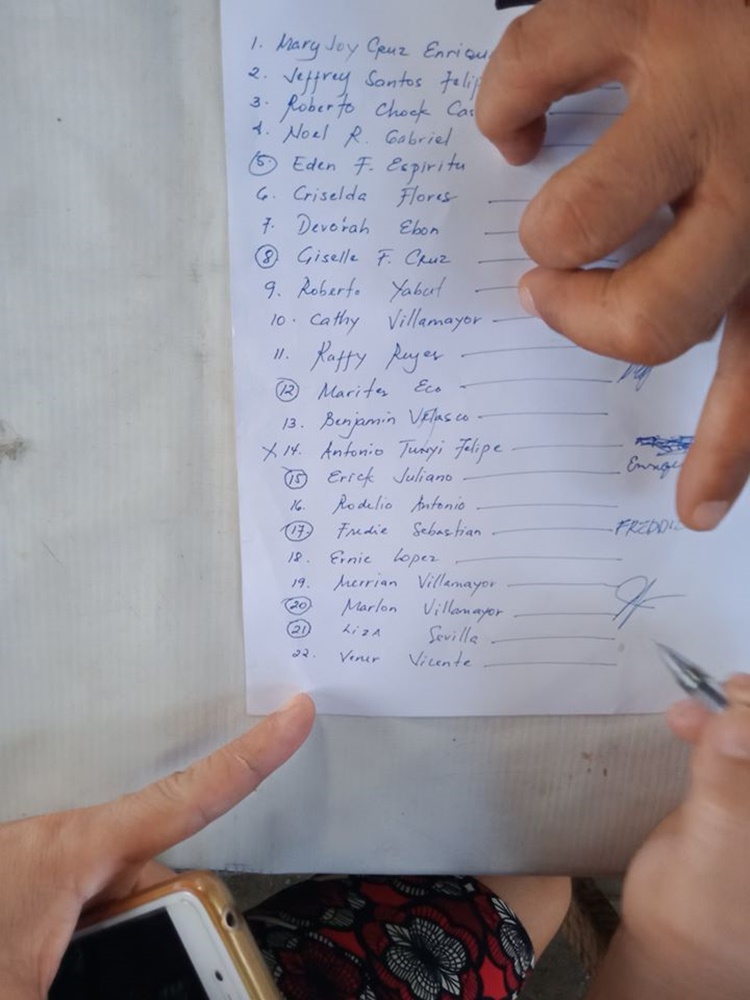 1. Mary Joy Cruz Enriqu
2. Jeffrey Santos Felip
3. Roberto Chock Cas
4. Noel R. Gabriel
5. Eden F. Espiritu
6. Criselda Flores
7. Devorah Ebon
8 Giselle F. Cruz
9. Roberto Yabut
10. Cathy Villamayor
11. Raffy Reyes
12 Marites Eco
13. Benjamin Velasco
X 14. Antonio Felipe
Enrique
15 Erick Juliano
16. Rodelio Antonio
17. Fredie Sebastian FREDDIE
18. Ernie Lopez
19. Merrian Villamayor
20 Marlon Villamayor
21 Liza Sevilla
22. Vener Vicente